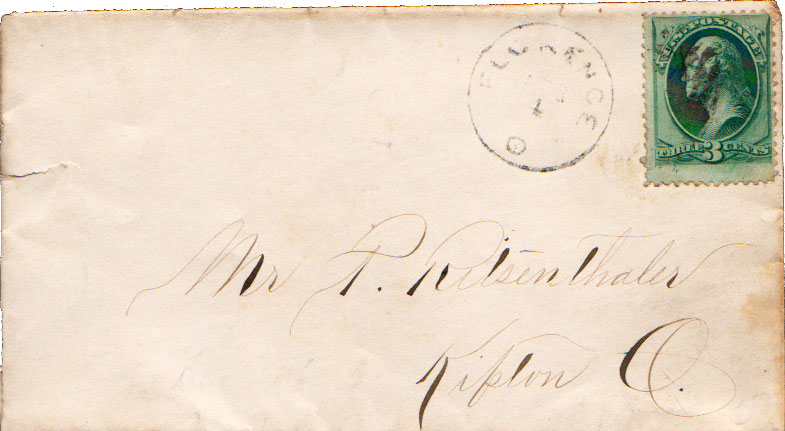 FLORENCE
O
U.S. POSTAGE
THREE 3 CENTS
Mr P. Ritsenthaler
Kipton O.